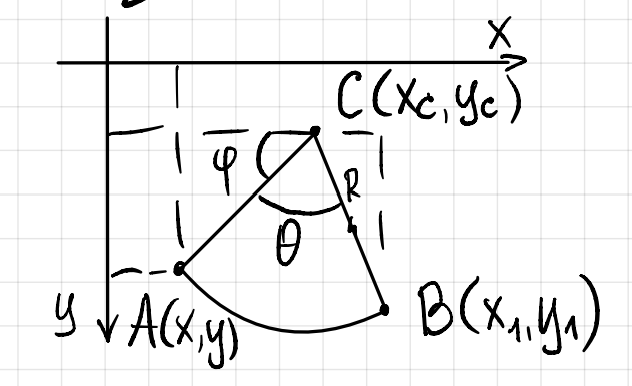 x
C(xc, yc)
φ
R
θ
y
A(x,y)
B(x1, y1)